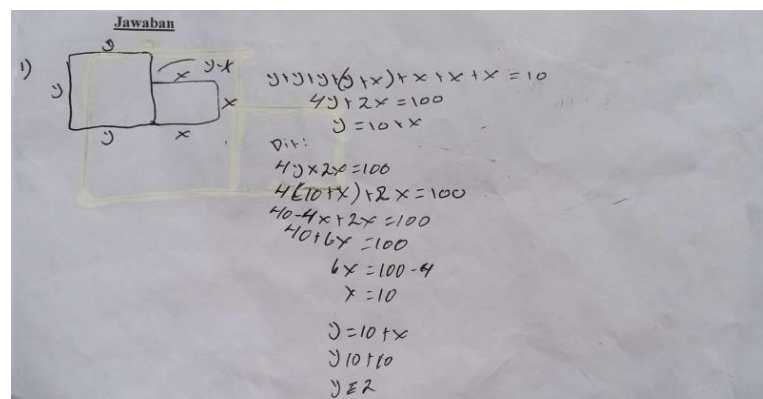 Jawaban
1)
y
y
y - x
x
x
y
x
y + y + y + (y + x) + x + x + x = 10
4y + 2x = 100
y = 10 + x
Dit:
4y x 2x = 100
4(10 + x) + 2x = 100
40 - 4x + 2x = 100
40 + 6x = 100
6x = 100 - 4
x = 10
y = 10 + x
y 10 + 10
y = 2